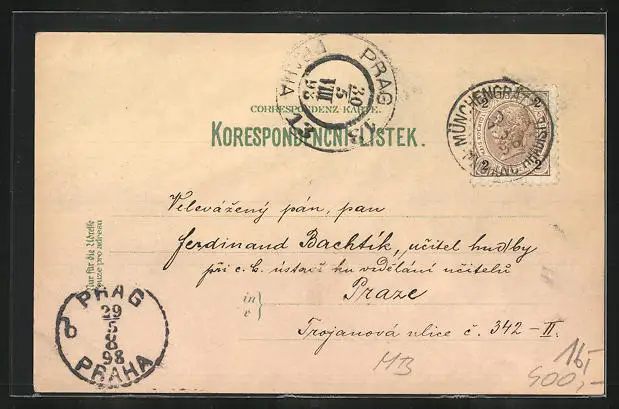 PRAG PRAHA
30
5
VIII
98
CORRESPONDENZ-KARTE.
KORESPONDENČNÍ LÍSTEK.
MÜNCHENGRÄTZ
2 2
2 2
Velevážený pán, pan
Ferdinand Bachtík, učitel hudby
při c. k. ústavě ku vzdělání učitelů
in
v } Praze
Trojanová ulice č. 342 – II.
Nur für die Adresse
Pouze pro adresu
PRAG
29
5
8
98
PRAHA
MB
16,-
900,-